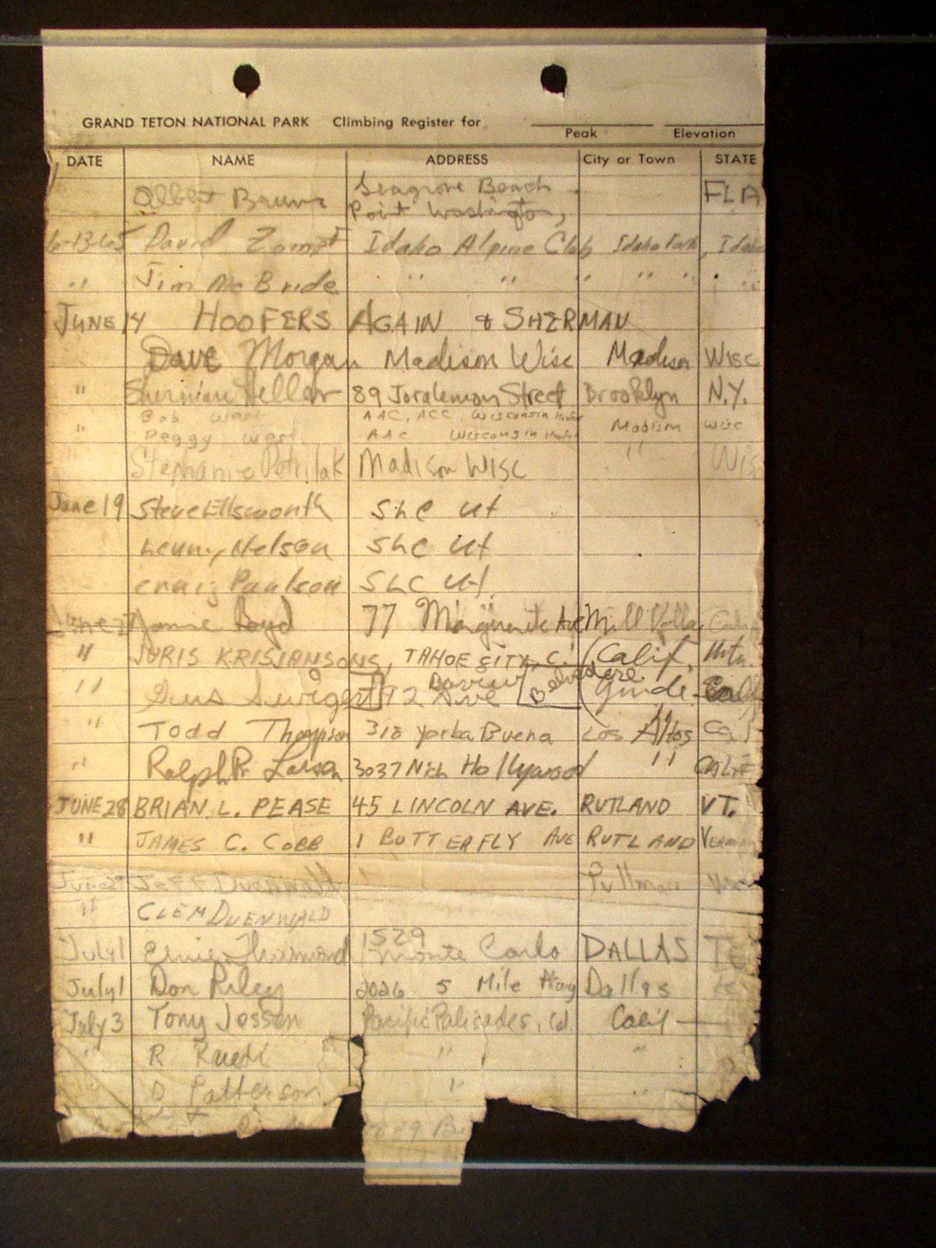 GRAND TETON NATIONAL PARK Climbing Register for
Peak Elevation
DATE NAME ADDRESS City or Town STATE
Seagrove Beach
Albert Bruns Point Washington, FLA
6-13-65 David Idaho Alpine Club Idaho Falls, Idaho
" Jim McBride " " " " " "
JUNE 14 HOOFERS AGAIN & SHERMAN
Dave Morgan Madison Wisc Madison Wisc
" Sherman Heller 89 Joralemon Street Brooklyn N.Y.
Bob West AAC, ACC, Wisconsin
" Peggy West AAC Wisconsin Madison Wisc
Stephanie Madison Wisc " Wis
June 19 Steve Ellsworth SLC Ut
Lenny Nelson SLC Ut
Craig Paulson SLC Ut.
June 27 Boyd 77 Marguerite Ave Mill Valley Calif
" JURIS KRISJANSONS, TAHOE CITY, C. (Calif.
" Swigert 72 Ave Belvedere (Guide
" Todd Thompson 318 Yorba Buena Los Altos Cal
" Ralph R. Larson 3037 Nich Hollywood " CALIF
JUNE 28 BRIAN L. PEASE 45 LINCOLN AVE. RUTLAND VT.
" JAMES C. COBB 1 BUTTERFLY AVE RUTLAND VERM
June 29 Jeff Duenwald Pullman
" CLEM DUENWALD
1529
July 1 Monte Carlo DALLAS TE
July 1 Don Riley 2026 5 Mile Dallas
July 3 Tony Jessen Pacific Palisades, Calif
" R " "
" D Patterson " "